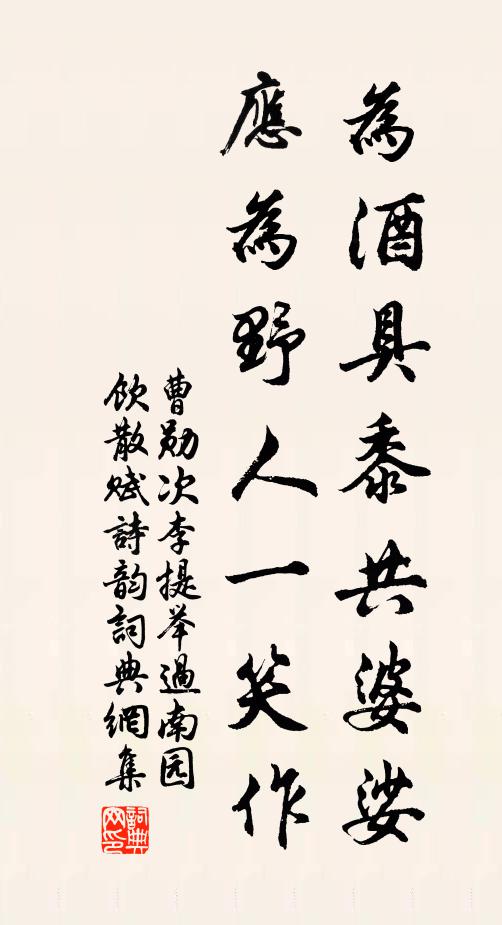 為酒具黍共婆娑
應為野人一笑作
曹勛次李提举過南园
飲散賦詩韵詞典網集
詞典網印